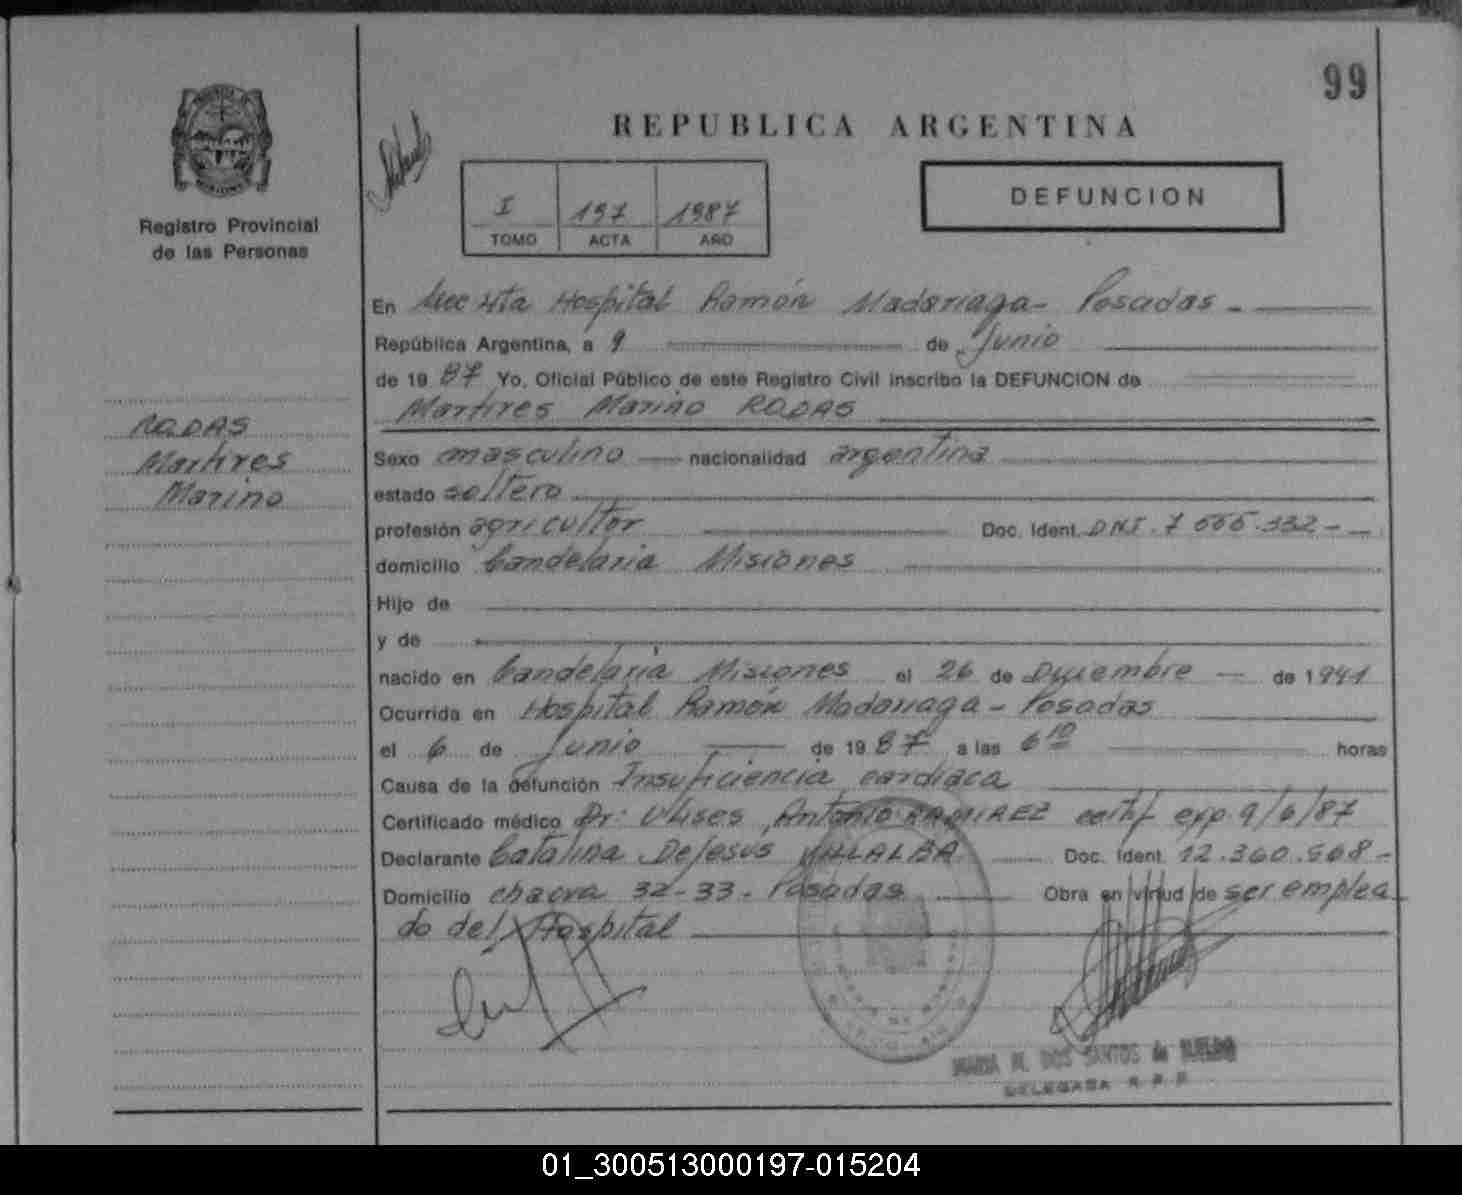 99
REPUBLICA ARGENTINA
Registro Provincial
de las Personas
I 197 1987
TOMO ACTA AÑO
DEFUNCION
En Secc 4ta Hospital Ramón Madariaga - Posadas -
República Argentina, a 9 de Junio
de 19 87 Yo, Oficial Público de este Registro Civil inscribo la DEFUNCION de
Martires Marino RODAS
RODAS
Martires
Marino
Sexo masculino nacionalidad argentina
estado soltero
profesión agricultor Doc. Ident. DNI. 7
domicilio Candelaria Misiones
Hijo de
y de
nacido en Candelaria Misiones el 26 de Diciembre de 1941
Ocurrida en Hospital Ramón Madariaga - Posadas
el 6 de Junio de 19 87 a las 6 10 horas
Causa de la defunción Insuficiencia cardiaca
Certificado médico Dr: Ulises Antonio RAMIREZ certif exp. 9/6/87
Declarante Catalina DeJesus VILLALBA Doc. Ident. 12.360.568 -
Domicilio chacra 32-33. Posadas Obra en virtud de ser emplea
do del Hospital
MARIA M. DOS SANTOS de
DELEGADA R. P. P.
01_300513000197-015204